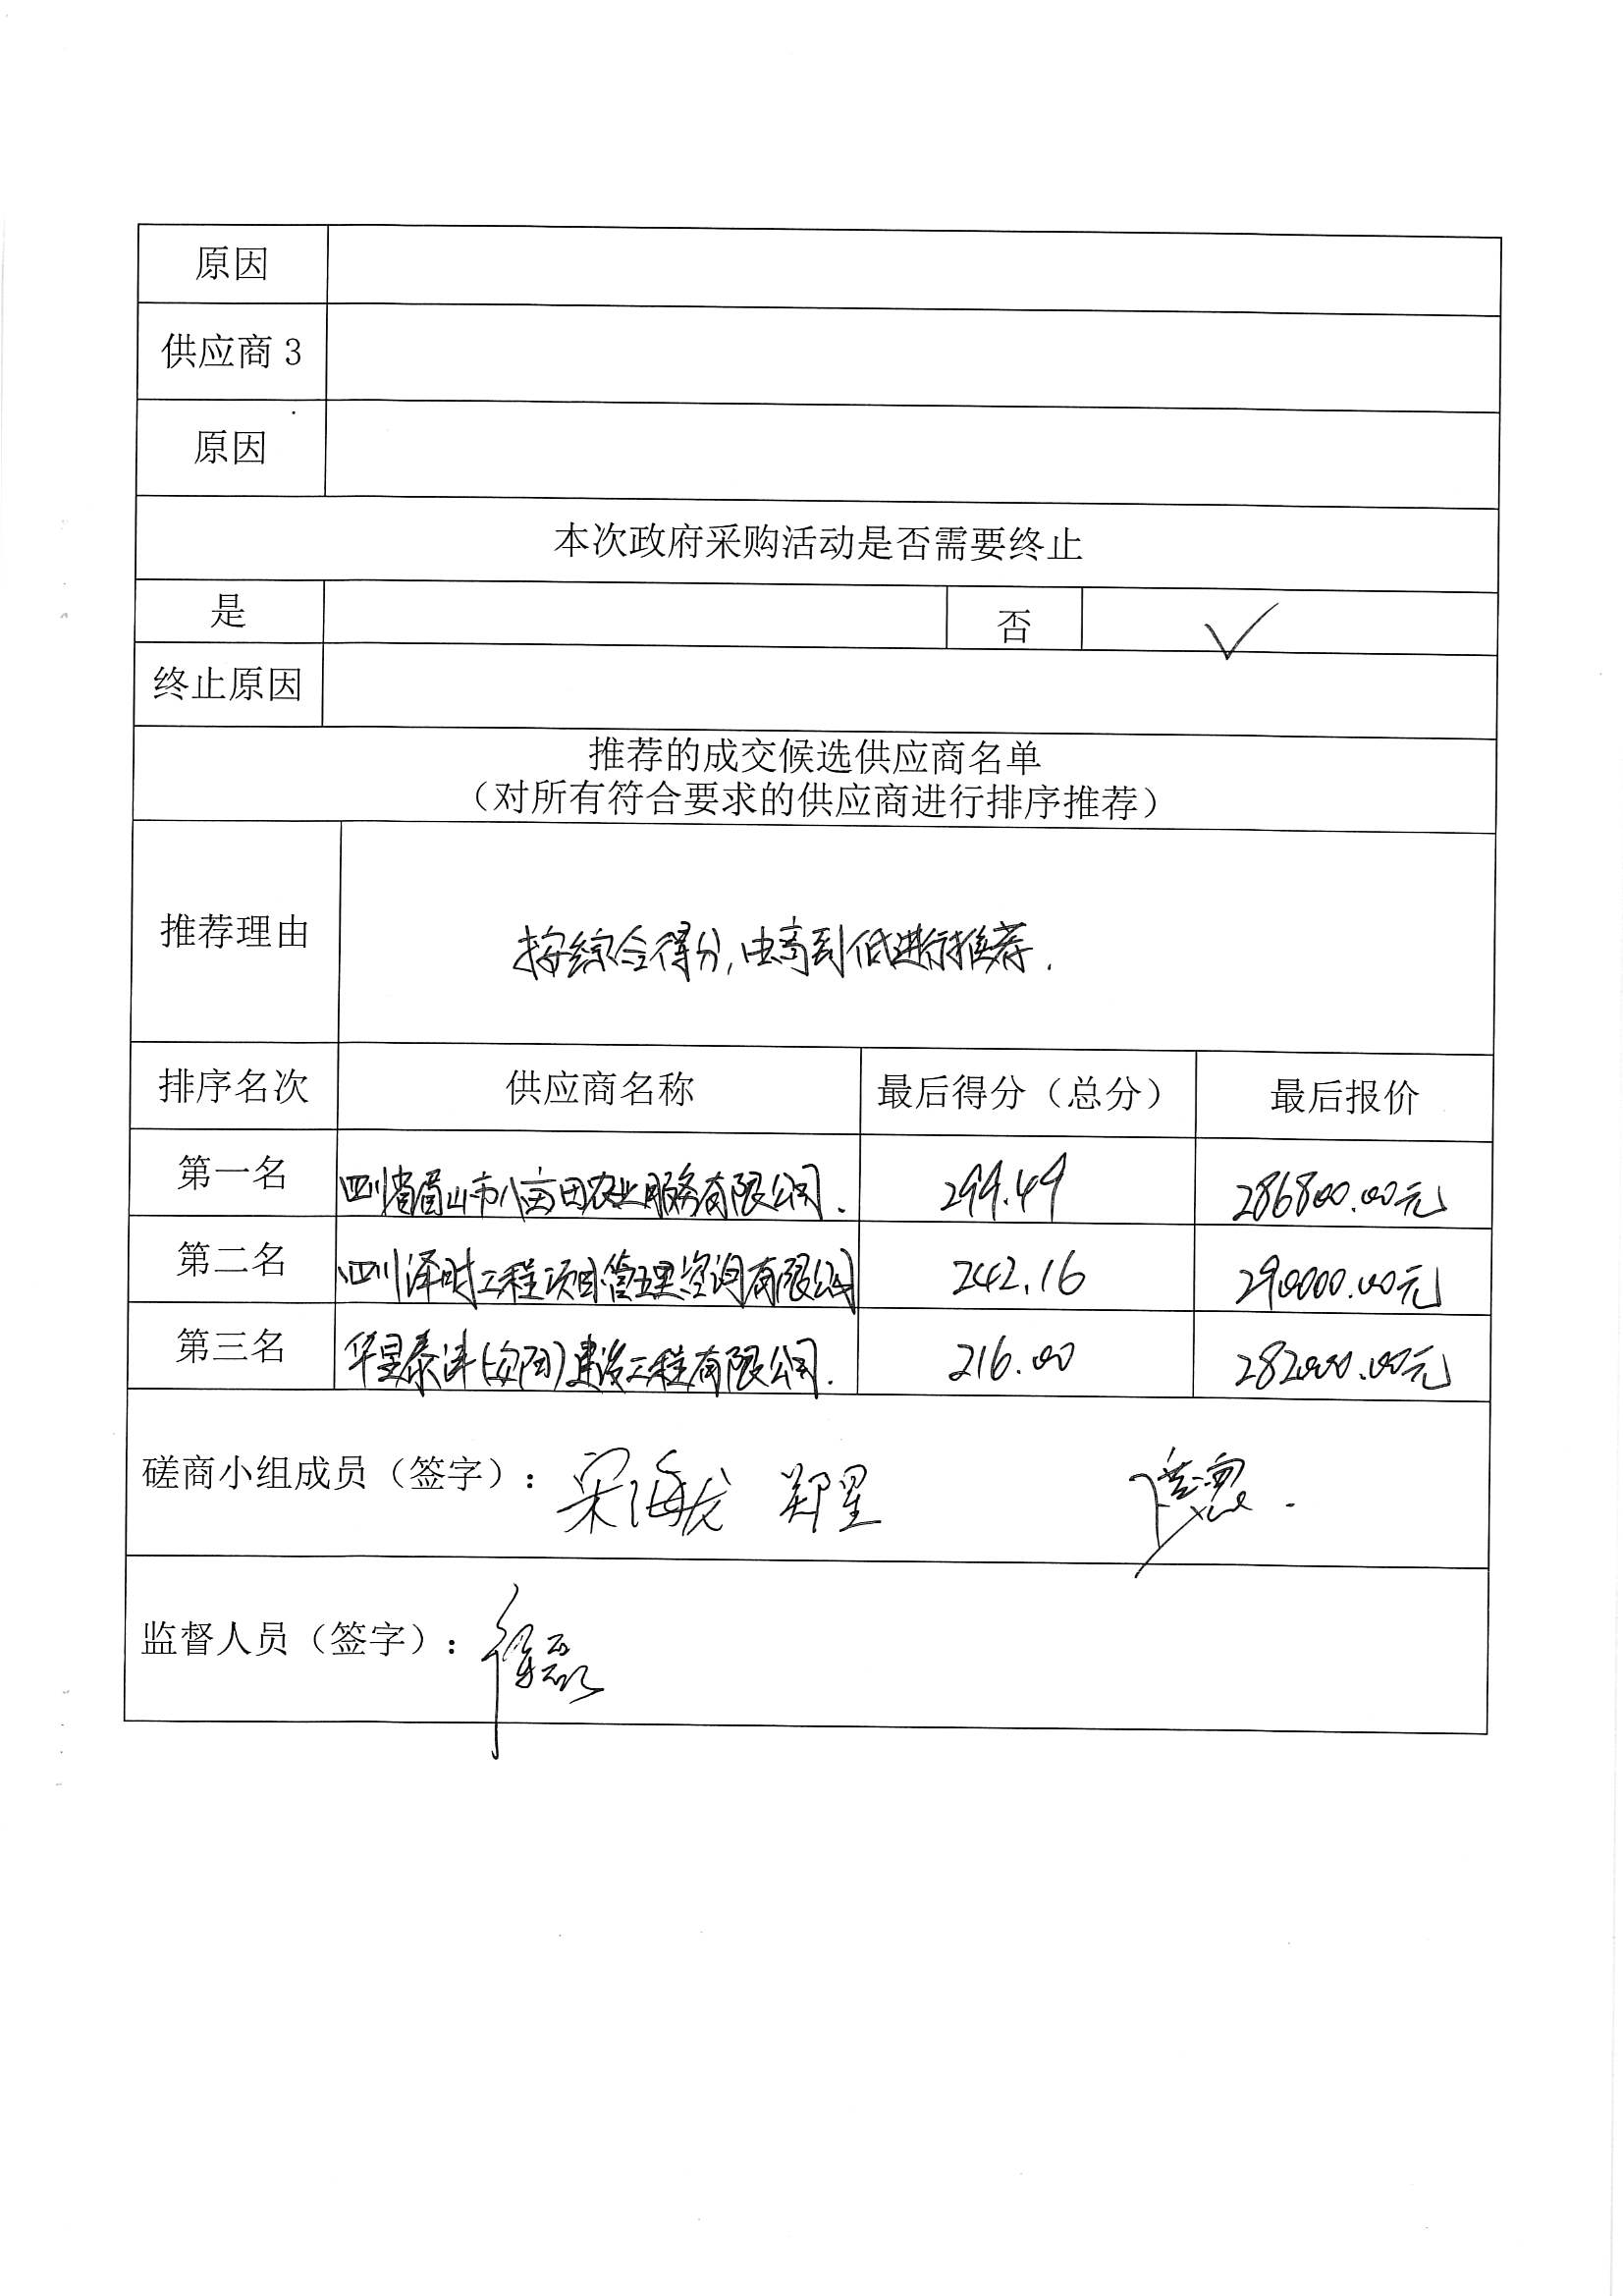 原因
供应商 3
原因
本次政府采购活动是否需要终止
是 否 √
终止原因
推荐的成交候选供应商名单
（对所有符合要求的供应商进行排序推荐）
推荐理由 按综合得分,由高到低进行推荐.
排序名次 供应商名称 最后得分（总分） 最后报价
第一名 四川省眉山市八亩田农业服务有限公司. 299.49 286800.00元
第二名 四川泽时工程项目管理咨询有限公司 242.16 290000.00元
第三名 华昱泰沣(安阳)建设工程有限公司. 216.00 282000.00元
磋商小组成员（签字）: 宋海龙 郑星
监督人员（签字）: 徐磊